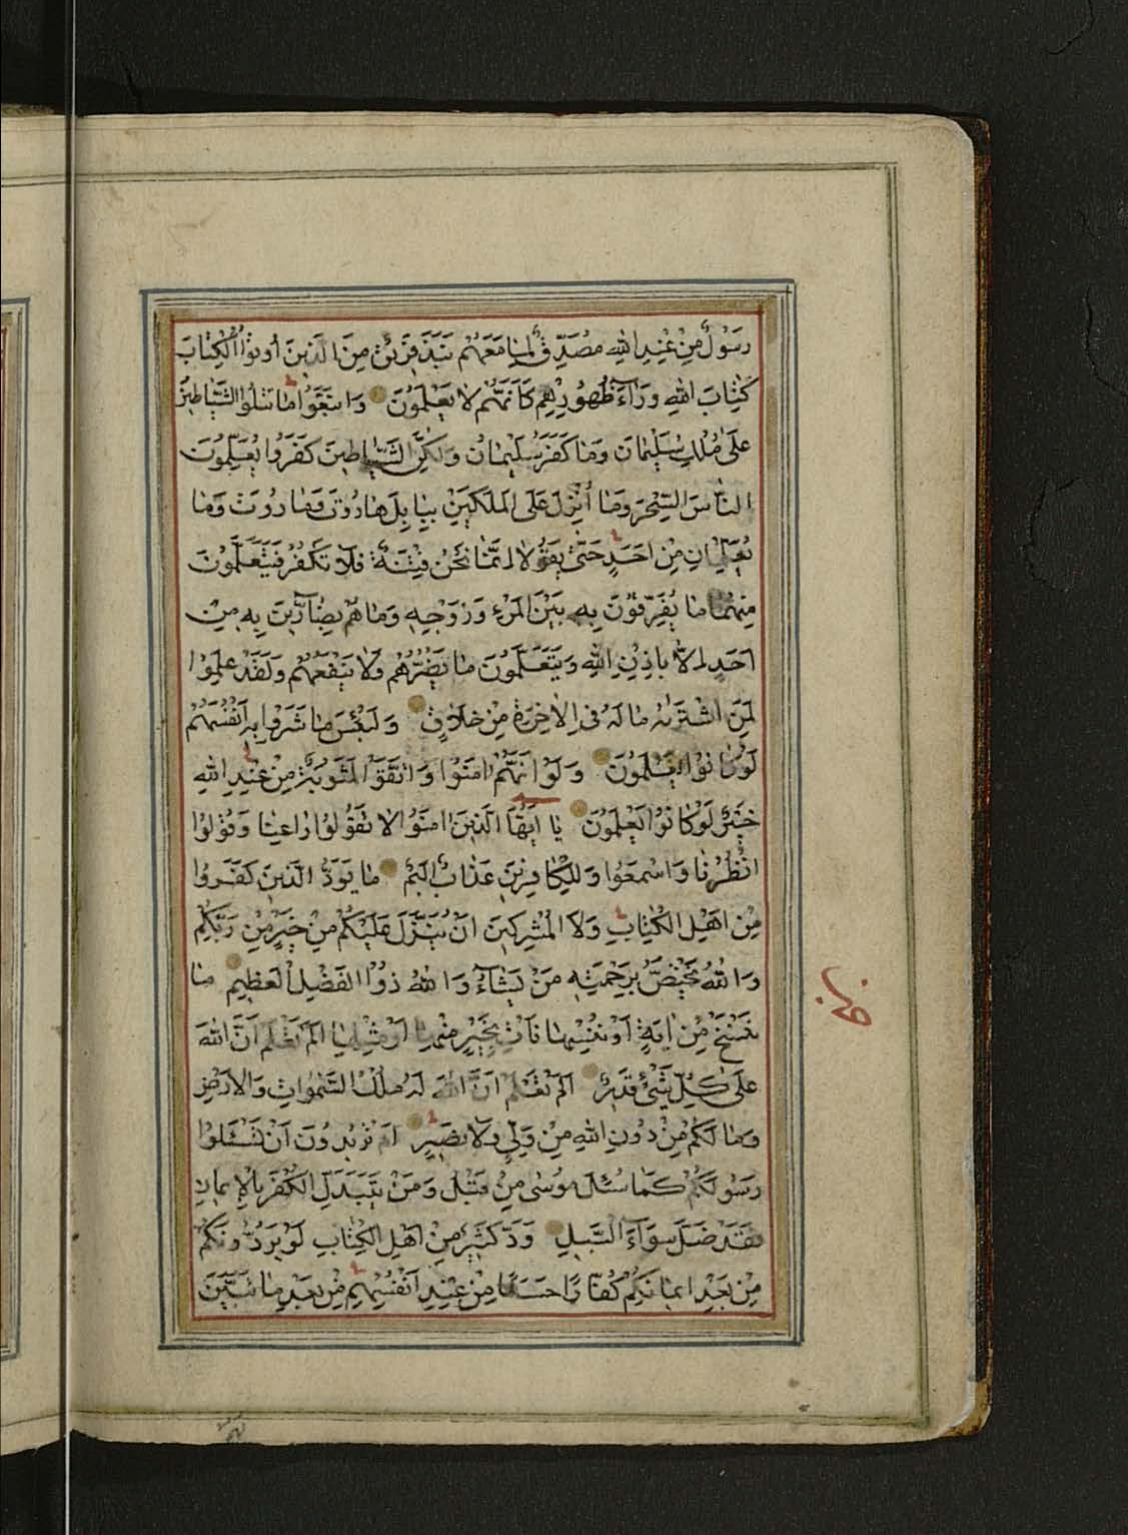 رَسُولٌ مِنْ عِنْدِ اللهِ مُصَدِّقٌ لِمَا مَعَهُمْ نَبَذَ فَرِيقٌ مِنَ الَّذِينَ أُوتُوا الْكِتَابَ
كِتَابَ اللهِ وَرَآءَ ظُهُورِهِمْ كَاَنَّهُمْ لَا يَعْلَمُونَ وَاتَّبَعُوا مَا تَتْلُوا الشَّيَاطِينَ
عَلَى مُلْكِ سُلَيْمَانَ وَمَا كَفَرَ سُلَيْمَانُ وَلَكِنَّ الشَّيَاطِينَ كَفَرُوا يُعَلِّمُونَ
النَّاسَ السِّحْرَ وَمَا أُنْزِلَ عَلَى الْمَلَكَيْنِ بِبَابِلَ هَارُوتَ وَمَارُوتَ وَمَا
يُعَلِّمَانِ مِنْ اَحَدٍ حَتَّى يَقُولَا اِنَّمَا نَحْنُ فِتْنَةٌ فَلَا تَكْفُرْ فَيَتَعَلَّمُونَ
مِنْهُمَا مَا يُفَرِّقُونَ بِهِ بَيْنَ الْمَرْءِ وَزَوْجِهِ وَمَا هُمْ بِضَآرِّينَ بِهِ مِنْ
اَحَدٍ اِلَّا بِاِذْنِ اللهِ وَيَتَعَلَّمُونَ مَا يَضُرُّهُمْ وَلَا يَنْفَعُهُمْ وَلَقَدْ عَلِمُوا
لَمَنِ اشْتَرَيهُ مَا لَهُ فِي الْاٰخِرَةِ مِنْ خَلَاقٍ وَلَبِئْسَ مَا شَرَوْا بِهِ اَنْفُسَهُمْ
لَوْ كَانُوا يَعْلَمُونَ وَلَوْ اَنَّهُمْ اٰمَنُوا وَاتَّقَوْا لَمَثُوبَةٌ مِنْ عِنْدِ اللهِ
خَيْرٌ لَوْ كَانُوا يَعْلَمُونَ يَا اَيُّهَا الَّذِينَ اٰمَنُوا لَا تَقُولُوا رَاعِنَا وَقُولُوا
انْظُرْنَا وَاسْمَعُوا وَلِلْكَافِرِينَ عَذَابٌ اَلِيمٌ مَا يَوَدُّ الَّذِينَ كَفَرُوا
مِنْ اَهْلِ الْكِتَابِ وَلَا الْمُشْرِكِينَ اَنْ يُنَزَّلَ عَلَيْكُمْ مِنْ خَيْرٍ مِنْ رَبِّكُمْ
وَاللهُ يَخْتَصُّ بِرَحْمَتِهِ مَنْ يَشَآءُ وَاللهُ ذُو الْفَضْلِ الْعَظِيمِ مَا
نَنْسَخْ مِنْ اٰيَةٍ اَوْ نُنْسِهَا نَأْتِ بِخَيْرٍ مِنْهَا اَوْ مِثْلِهَا اَلَمْ تَعْلَمْ اَنَّ اللهَ
عَلَى كُلِّ شَيْءٍ قَدِيرٌ اَلَمْ تَعْلَمْ اَنَّ اللهَ لَهُ مُلْكُ السَّمٰوَاتِ وَالْاَرْضِ
وَمَا لَكُمْ مِنْ دُونِ اللهِ مِنْ وَلِيٍّ وَلَا نَصِيرٍ اَمْ تُرِيدُونَ اَنْ تَسْئَلُوا
رَسُولَكُمْ كَمَا سُئِلَ مُوسَى مِنْ قَبْلُ وَمَنْ يَتَبَدَّلِ الْكُفْرَ بِالْاِيمَانِ
فَقَدْ ضَلَّ سَوَآءَ السَّبِيلِ وَدَّ كَثِيرٌ مِنْ اَهْلِ الْكِتَابِ لَوْ يَرُدُّونَكُمْ
مِنْ بَعْدِ اِيمَانِكُمْ كُفَّارًا حَسَدًا مِنْ عِنْدِ اَنْفُسِهِمْ مِنْ بَعْدِ مَا تَبَيَّنَ